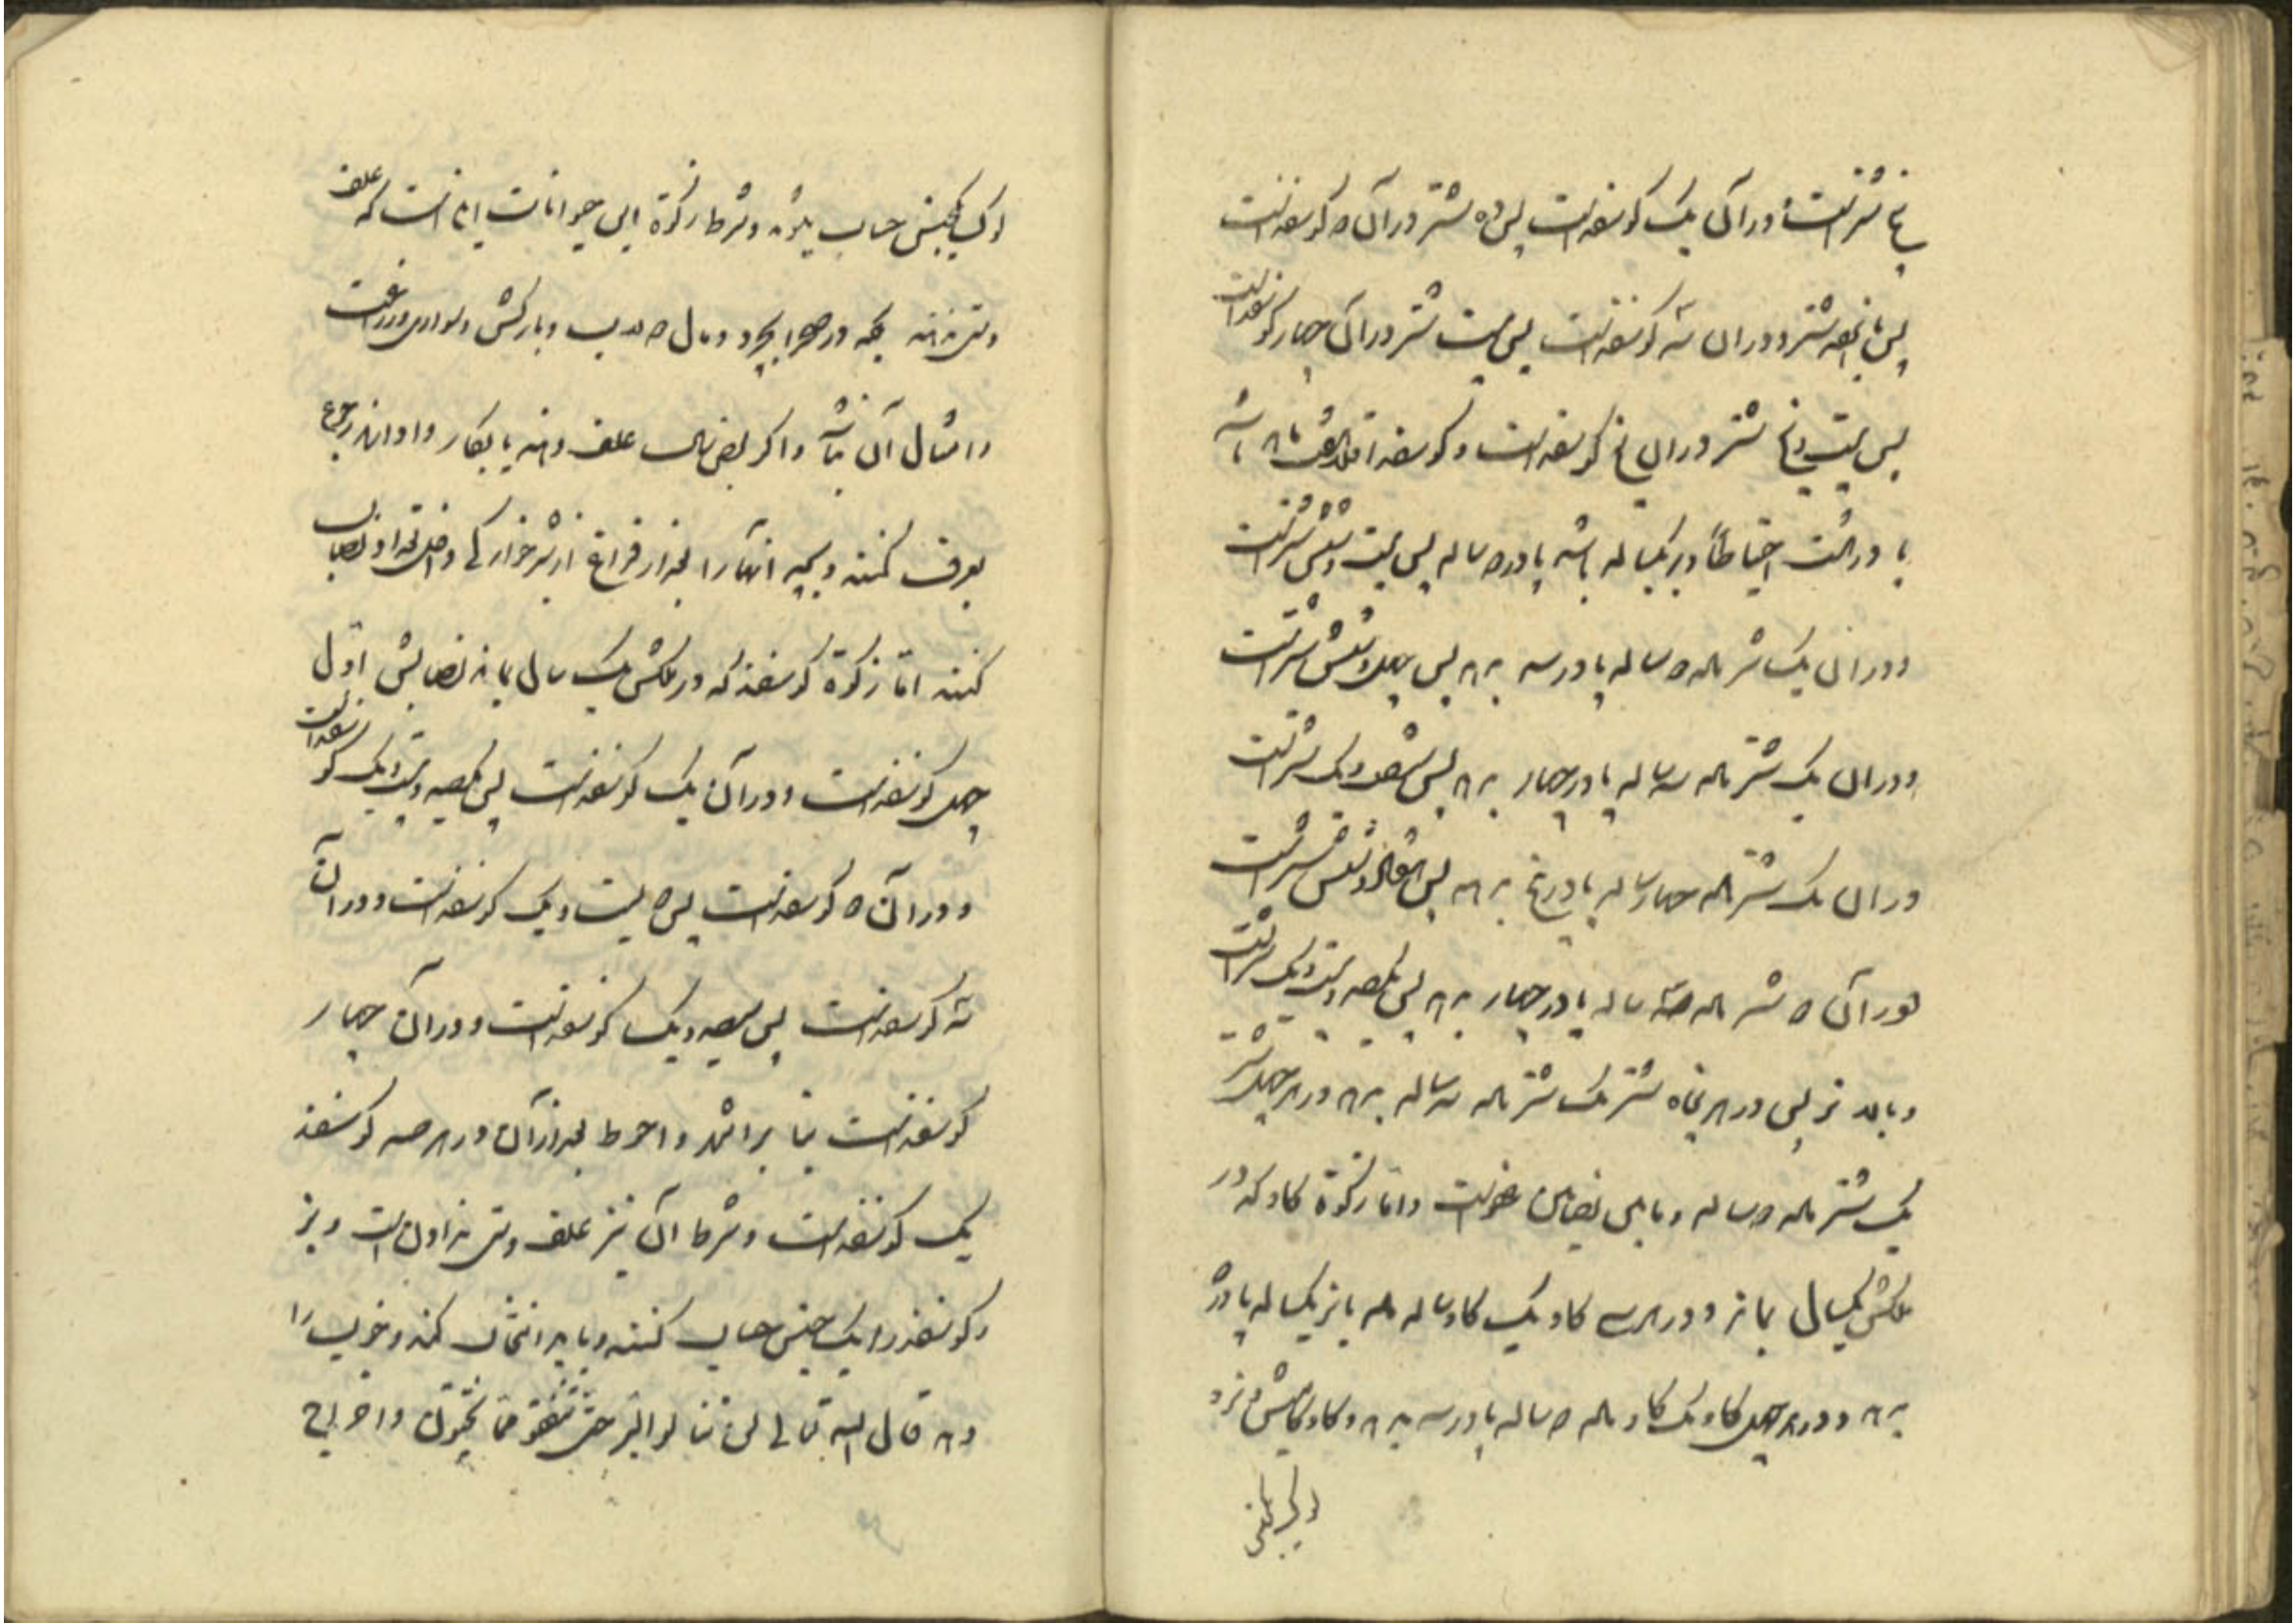 پنج شتر است و در آن یک گوسفند است پس ده شتر و در آن دو گوسفند است
پس پانزده شتر و در آن سه گوسفند است پس بیست شتر و در آن چهار گوسفند است
پس بیست و پنج شتر و در آن پنج گوسفند است و گوسفند باشد
یا احتیاطاً و بز یکساله باشد پا در دو ساله پس بیست و شش شتر است
و در آن یک شتر ماده دو ساله پا در سه نهد پس چهل و شش شتر است
و در آن یک شتر ماده سه ساله پا در چهار نهد پس شصت و یک شتر است
و در آن یک شتر ماده چهار ساله پا در پنج نهد پس هفتاد و شش شتر است
و در آن دو شتر ماده سه ساله پا در چهار نهد پس یکصد و بیست و یک شتر است
و بالاتر پس در هر پنجاه شتر یک شتر ماده سه ساله بدهد و در هر چهل شتر
یک شتر ماده دو ساله و مابین نصابین عفو است و اما زکوة گاو که در
ملکش یکسال بماند و در هر سی گاو یک گاو ساله ماده یا نر یکساله پا در دو
نهد و در هر چهل گاو یک گاو ماده دو ساله پا در سه نهد و گاو و گاومیش نر و
یک جنس حساب بشود و شرط زکوة این حیوانات اینست که علف
دستی ندهند بلکه در صحرا بچرد و سال و بارکش و سواری و زراعت
و امثال آن نباشد و اگر بعض سال علف دهند یا بکار وادارند رجوع
بعرف کنند و بچه آنها را بعد از فراغ از شیر خوارگی داخل نصاب
کنند اما زکوة گوسفند که در ملکش یک سال بماند نصابش اول
چهل گوسفند است و در آن یک گوسفند است پس یکصد و بیست و یک گوسفند است
و در آن دو گوسفند است پس دویست و یک گوسفند است و در آن
سه گوسفند است پس سیصد و یک گوسفند است و در آن چهار
گوسفند است بنا بر اشهر و احوط بعد از آن در هر صد گوسفند
یک گوسفند است و شرط آن نیز علف دستی نداون است و بز
و گوسفند را یک جنس حساب کنند و باید انتخاب کند و خوب را
دهد قال الله تعالی لن تنالوا البر حتی تنفقوا مما تحبون و اخراج